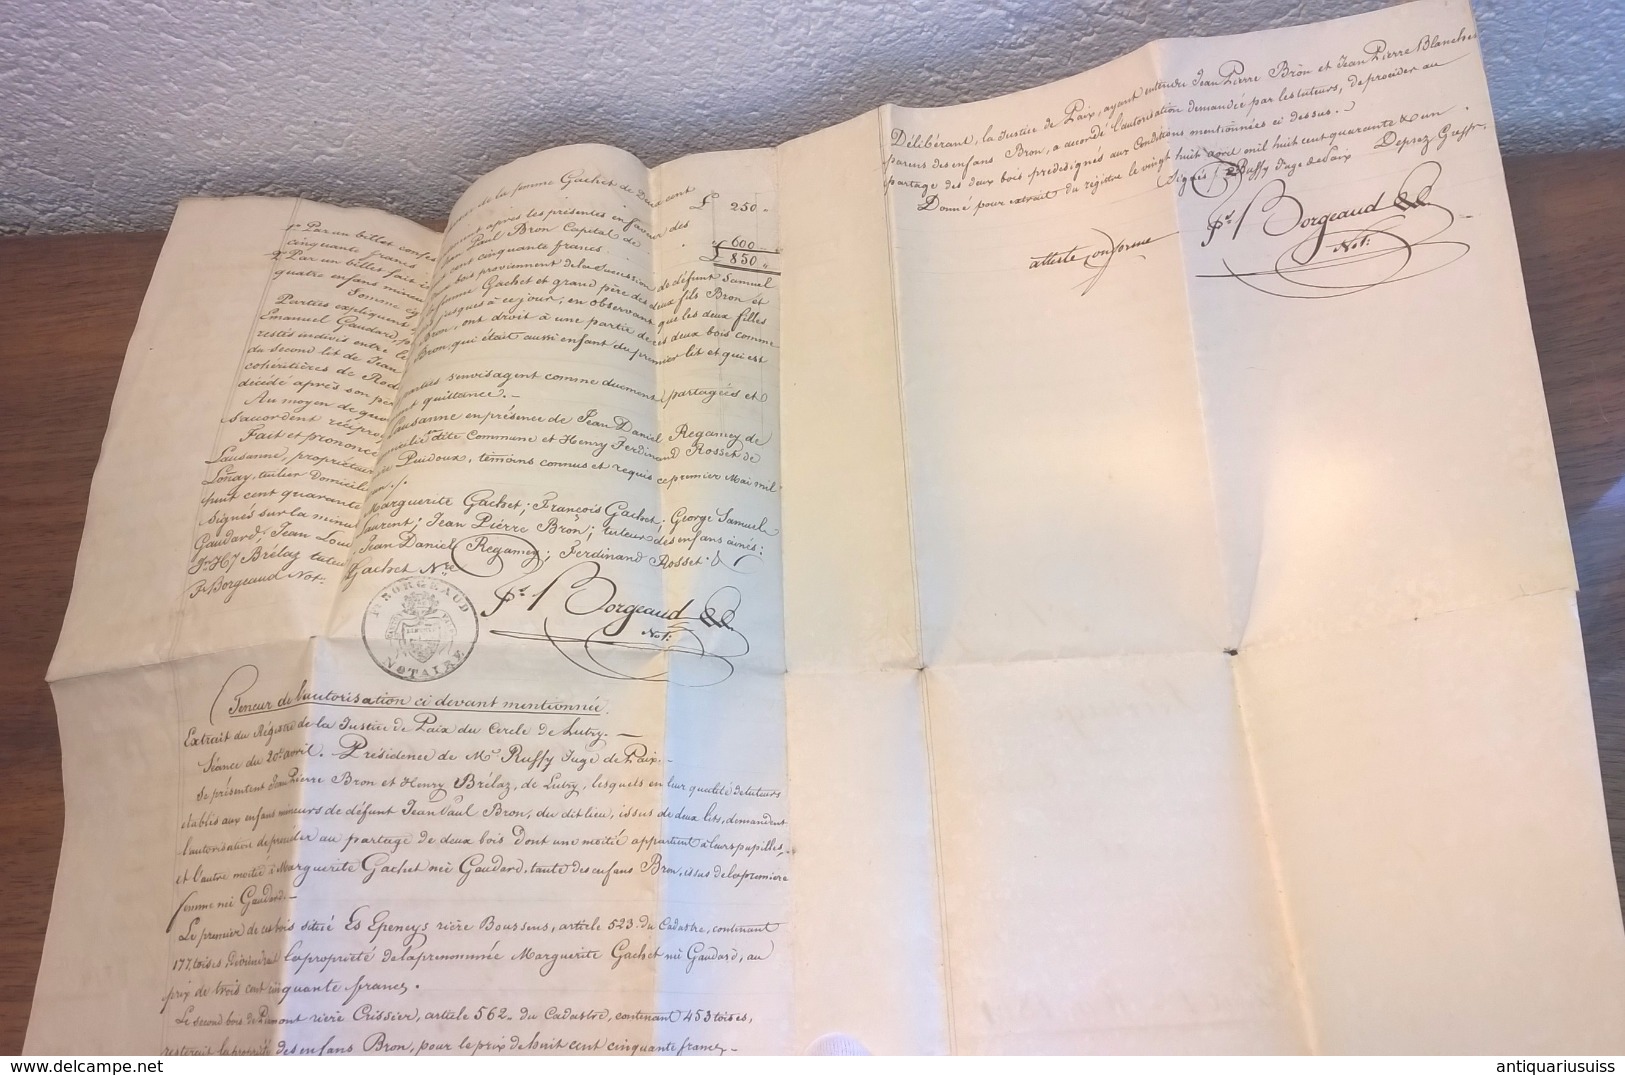 1º Par un billet
cinquante francs
2º Par un billet fait
quatre enfans mineurs
Somme
Parties expliquent
Emanuel Gaudard,
restés indivis entre
du second lit de Jean
cohéritières de
décédé après son
Au moyen de quoi
s'accordent
Fait et prononcé
Lausanne, propriétaire
Lonay, tuilier domicilié
huit cent quarante
Signés sur la
Gaudard; Jean
J. H. Brélaz
F. Borgeaud Not.
de la femme Gachet de Deux cent
£ 250 "
après les présentes en faveur des
Paul Bron Capital de
cent cinquante francs
600
£ 850 "
bois proviennent de la succession de défunt Samuel
femme Gachet et grand père des deux fils Bron et
jusques à ce jour; en observant que les deux filles
Bron, ont droit à une partie de ces deux bois comme
Bron, qui était aussi enfant du premier lit et qui est
parties s'envisagent comme duement partagées et
quittance. –
Lausanne en présence de Jean Daniel Regamey de
dite Commune et Henry Ferdinand Rosset de
Puidoux, témoins connus et requis ce premier Mai mil
Marguerite Gachet; François Gachet; George Samuel
Laurent; Jean Pierre Bron; tuteur des enfans ainés;
Jean Daniel Regamey; Ferdinand Rosset;
Gachet Nre
Ps. Borgeaud
Not:
BORGEAUD
NOTAIRE
Teneur de l'autorisation ci devant mentionnée.
Extrait du Régistre de la Justice de Paix du Cercle de Lutry. —
Séance du 20e avril. Présidence de Mr Ruffy Juge de Paix. –
Se présentent Jean Pierre Bron et Henry Brélaz, de Lutry, lesquels en leur qualité de tuteurs
établis aux enfans mineurs de défunt Jean Paul Bron, du dit lieu, issus de deux lits, demandent
l'autorisation de procéder au partage de deux bois Dont une moitié appartient à leurs pupilles, –
et l'autre moitié à Marguerite Gachet née Gaudard, tante des enfans Bron, issus de la première
femme née Gaudard. –
Le premier de ces bois situé Es Epeneys rière Boussens, article 523 du Cadastre, contenant
177, toises deviendrait la propriété de la prénommée Marguerite Gachet née Gaudard, au
prix de trois cent cinquante francs.
Le second bois de rière Crissier, article 562 du Cadastre, contenant 453 toises,
resterait la propriété des enfans Bron, pour le prix de huit cent cinquante francs –
Délibérant, la Justice de Paix, ayant entendu Jean Pierre Bron et Jean Pierre Blanchet
parens des enfans Bron, a accordé l'autorisation demandée par les tuteurs, de procéder au
partage des deux bois prédésignés aux Conditions mentionnées ci dessus. –
Donné pour extrait du registre le vingt huit avril mil huit cent quarante & un.
Signés Ruffy Juge de Paix Deprez Greffr.
atteste conforme
Ps. Borgeaud
Not:
www.delcampe.net
antiquariusuiss